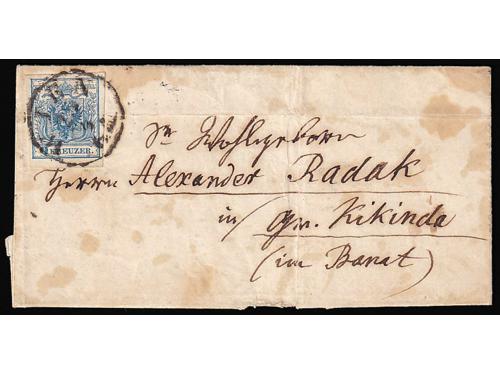 KREUZER.
Sr Wohlgeborn
Herrn Alexander Radak
in Gr. Kikinda
(im Banat)